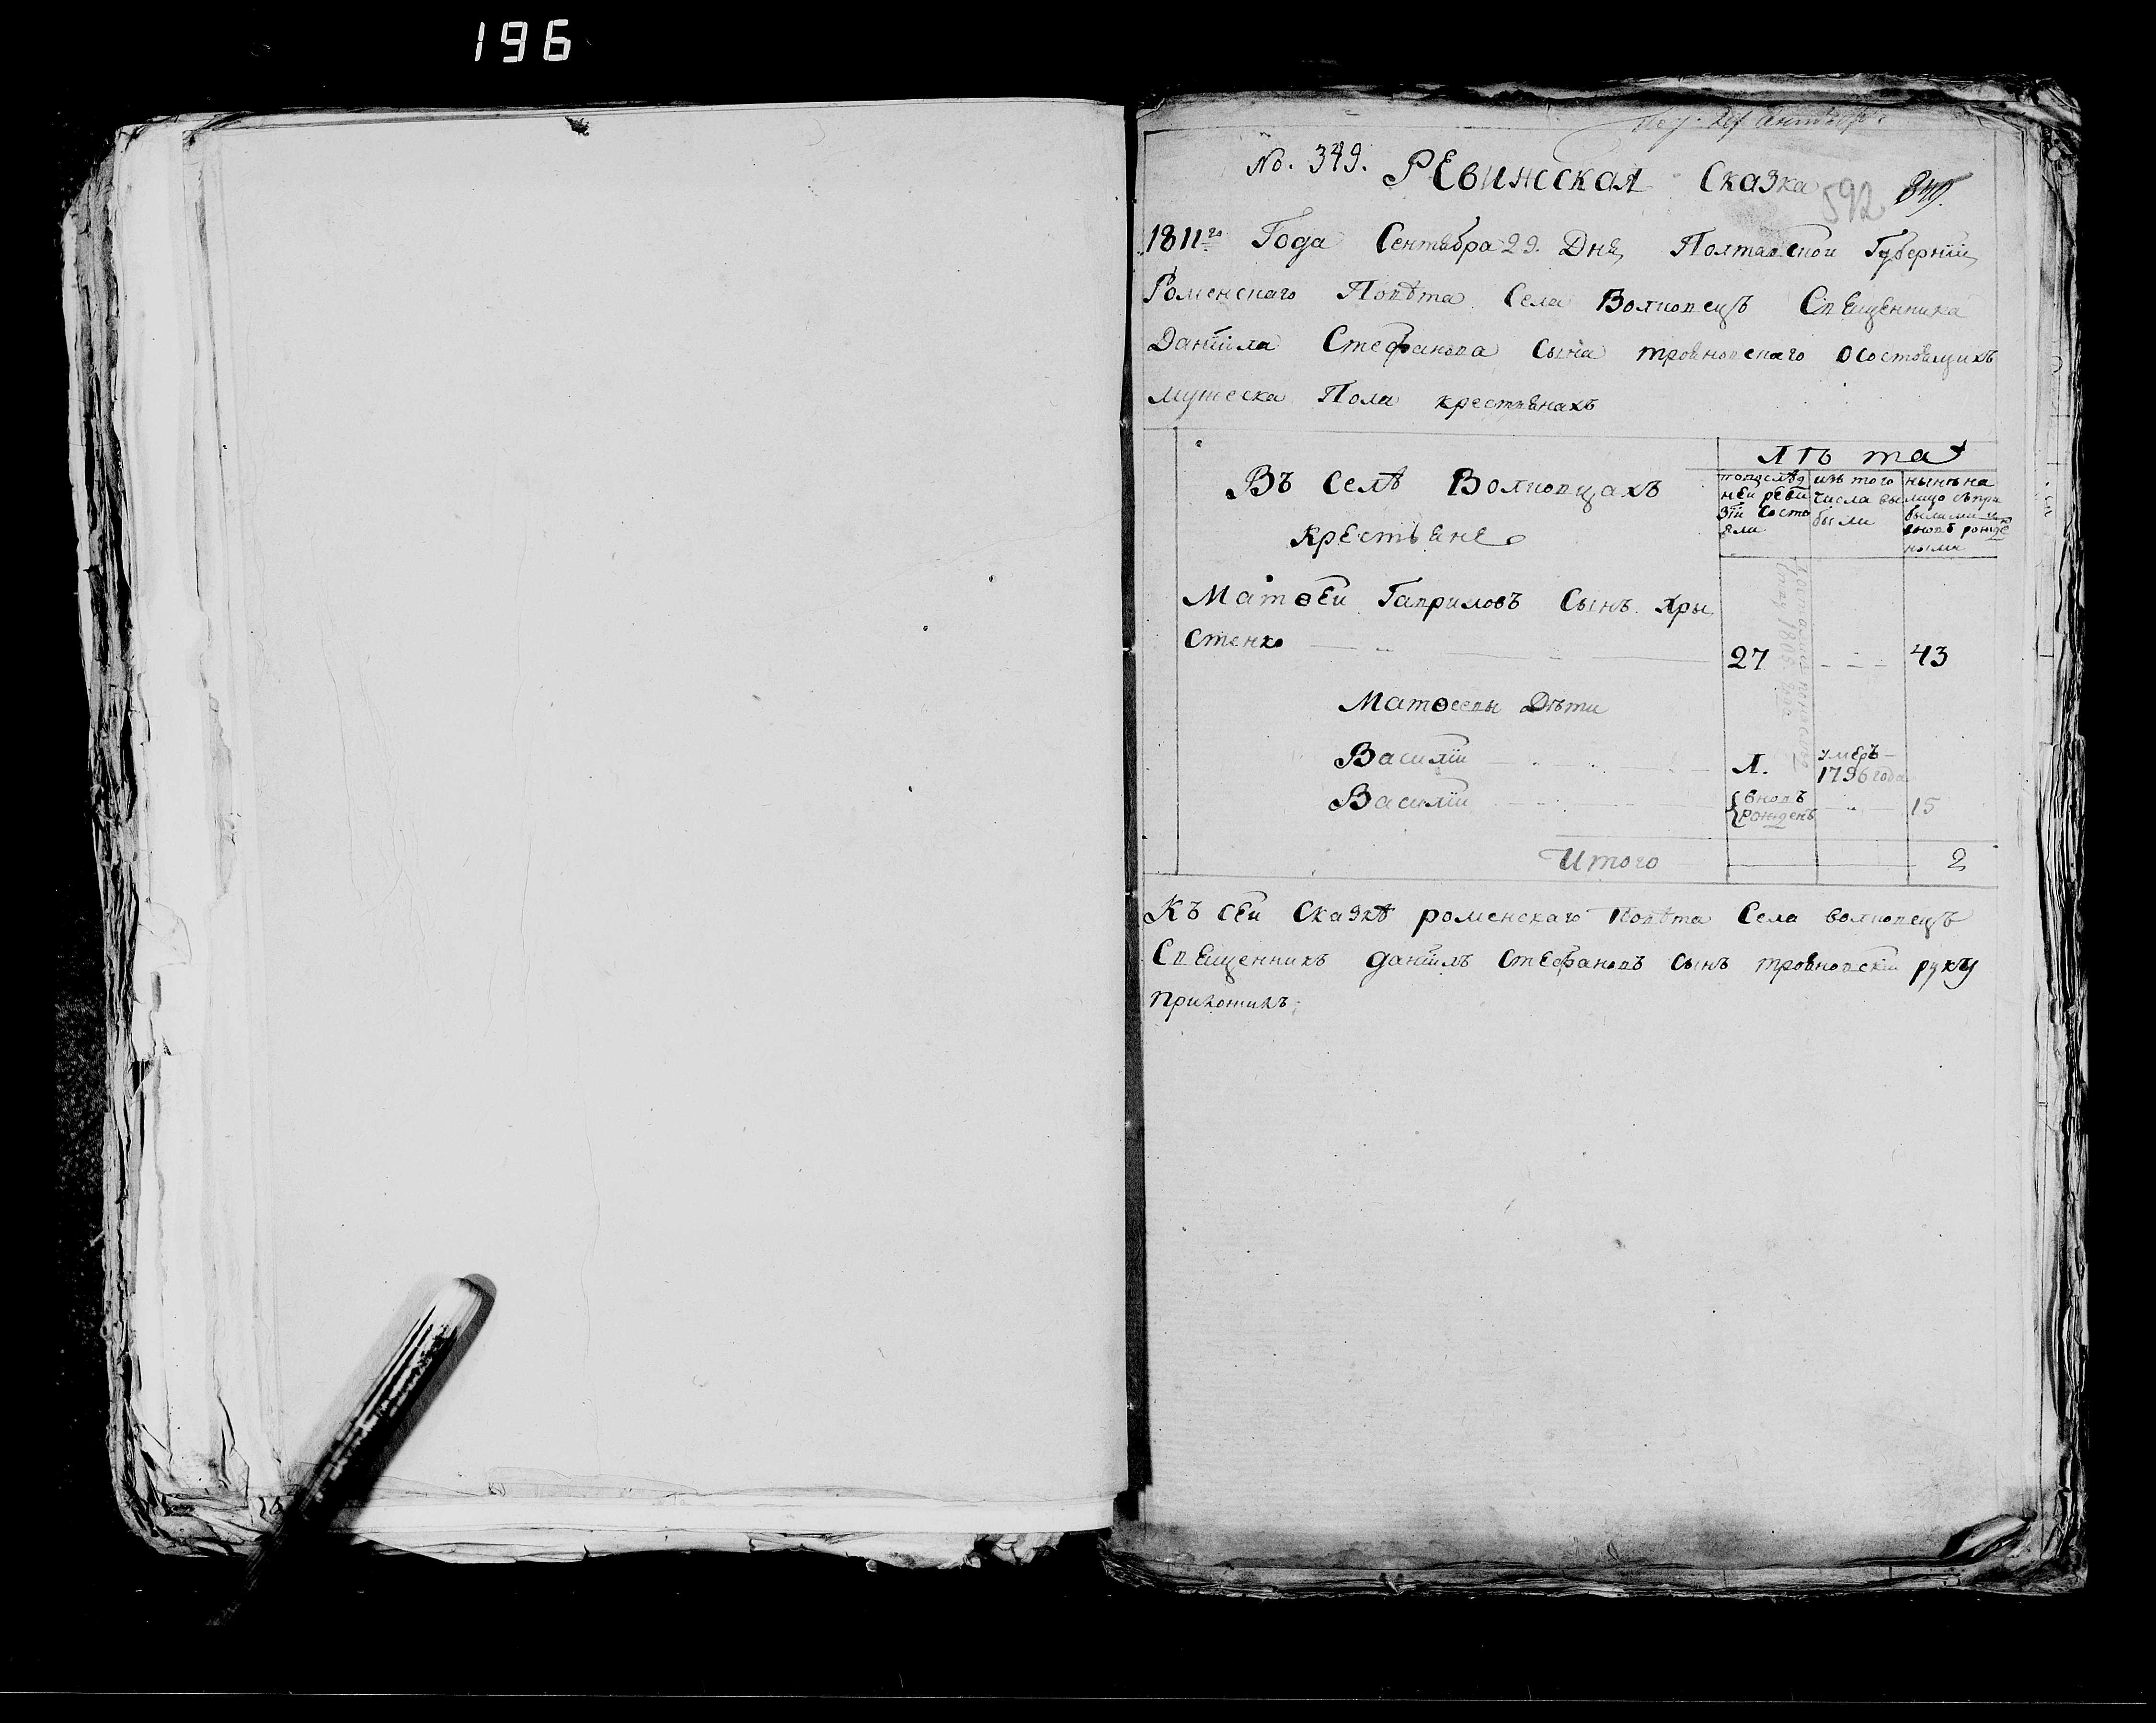 196
No. 349. Ревижская Сказка 592 849.
1811го Года Сентября 29. Дня, Полтавской Губернїи,
Роменскаго Повѣта Села Волковецъ Священника
Данїила Стефанова Сына тройновскаго Осостоящихъ
мужеска Пола крестьянахъ
Въ Селѣ Волковцахъ
крестьяне
Лѣта
попослѣд
ней реви
зїи состо
яли
изъ того
числа вы
были
нынѣ на
лицо съпри
былыми и
вновь рожде
ными
Матѳей Гавриловъ Сынъ Хры
стенко 27 43
Матѳеевы Дѣти
Василїй 1. умеръ
1796 года
Василїй вновь
рожденъ 15
Итого 2
Къ сей Сказкѣ роменскаго Повѣта Села волковецъ
Священникъ данїилъ Стефановъ сынъ тройновскїй руку
приложилъ;